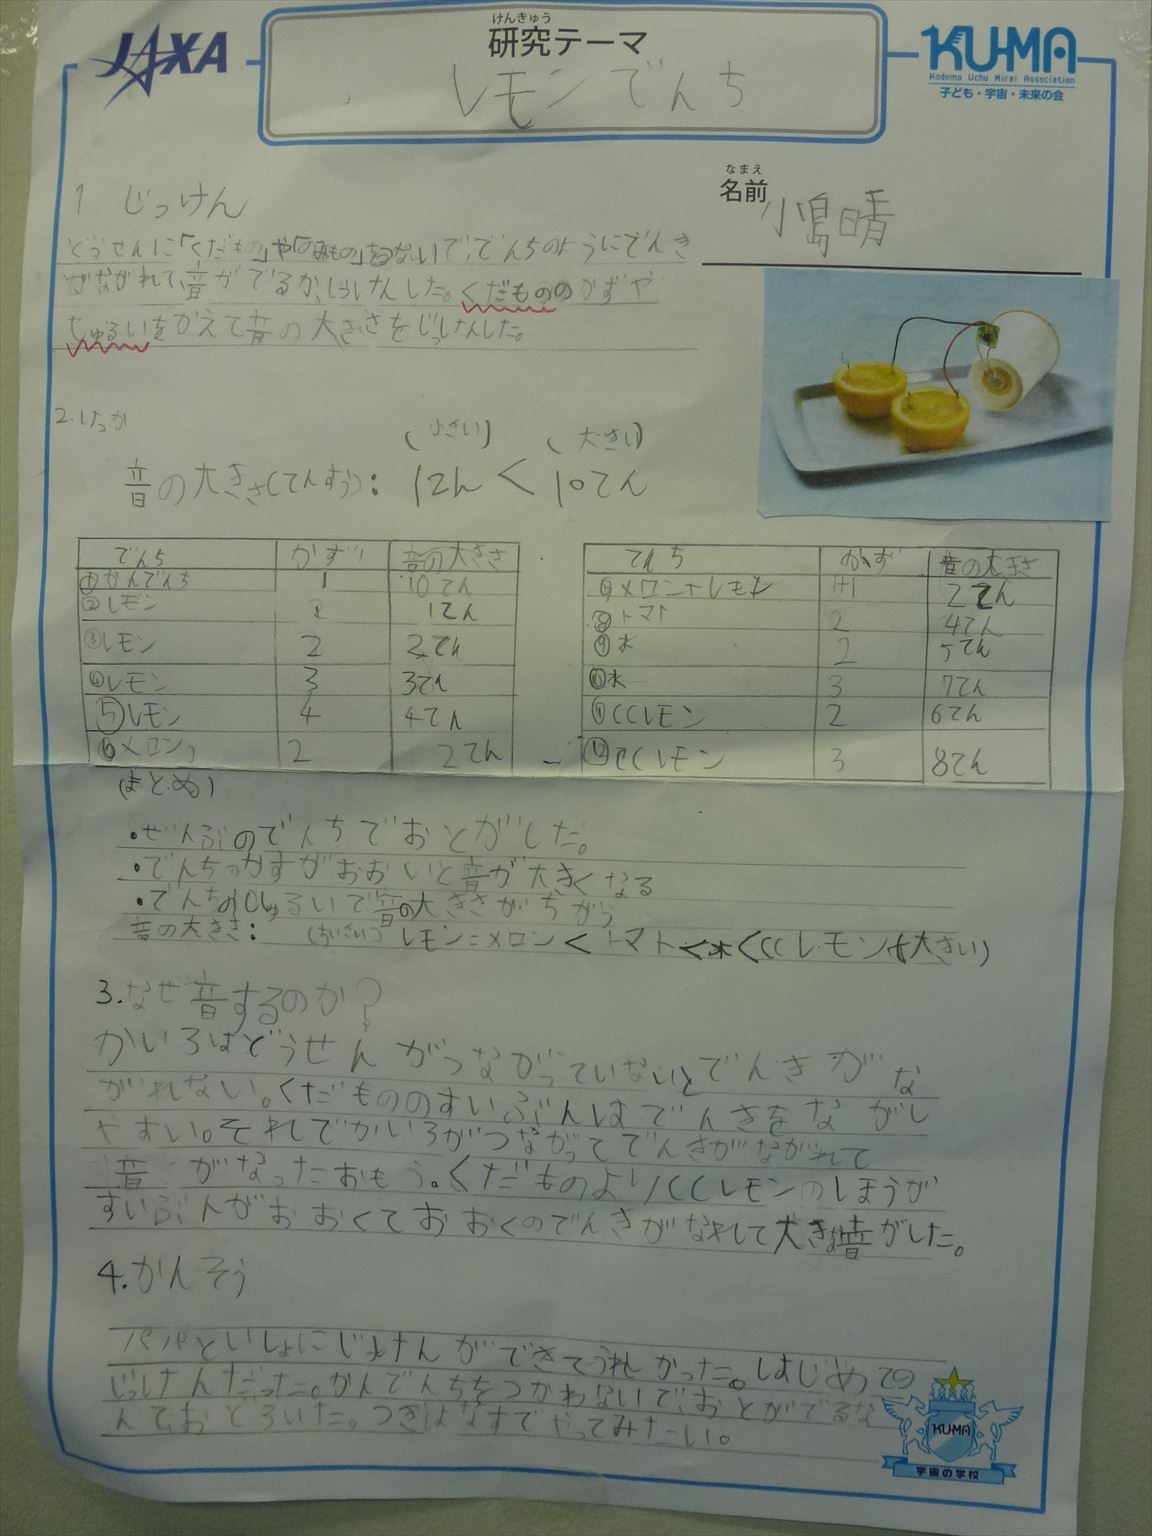 JAXA
けんきゅう
研究テーマ
レモンでんち
KU-MA
Kodomo Uchu Mirai Association
子ども・宇宙・未来の会
なまえ
名前
小島晴
1 じっけん
どうせんに「くだもの」や「のみもの」をつないで、でんちのようにでんき
がながれて、音がでるか、じっけんした。くだもののかずや
しゅるいをかえて音の大きさをじっけんした。
2.けっか
(小さい) (大きい)
音の大きさ(てんすう): 1てん < 10てん
でんち かず 音の大きさ
①かんでんち 1 10てん
②レモン 1てん
③レモン 2 2てん
④レモン 3 3てん
⑤レモン 4 4てん
⑥メロン 2 2てん
でんち かず 音の大きさ
メロン+レモン 1+1 2てん
⑧トマト 2 4てん
⑨水 2 5てん
⑩水 3 7てん
⑪CCレモン 2 6てん
⑫CCレモン 3 8てん
(まとめ)
・ぜんぶのでんちでおとがした。
・でんちのかずがおおいと音が大きくなる
・でんちのしゅるいで音の大きさがちがう
音の大きさ: (ちいさい) レモン=メロン<トマト<水<CCレモン(大きい)
3.なぜ音するのか?
かいろはどうせんがつながっていないとでんきがな
がれない。くだもののすいぶんはでんきをながし
やすい。それでかいろがつながってでんきがながれて
音がなったおもう。くだものよりCCレモンのほうが
すいぶんがおおくておおくのでんきがながれして大きな音がした。
4.かんそう
パパといしょにじっけんができてうれしかった。はじめての
じっけんだった。かんでんちをつかわないで、おとがでるな
んて、おどろいた。つぎはなすでやってみたい。
KUMA
宇宙の学校